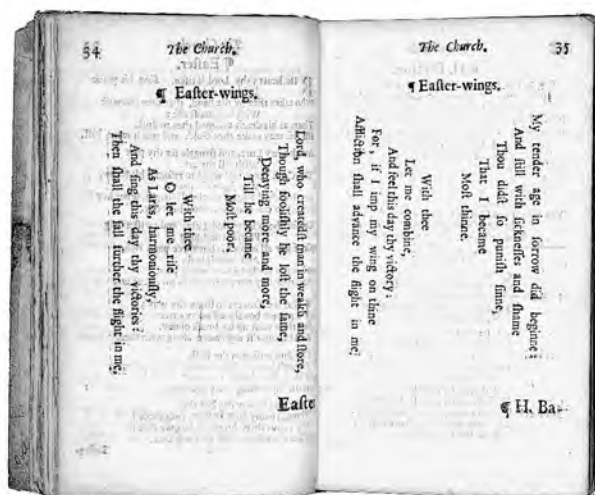 34 The Church.
¶ Eaſter-wings.
Lord, who createdſt man in wealth and ſtore,
Though fooliſhly he loſt the ſame,
Decaying more and more,
Till he became
Moſt poor:
With thee
O let me riſe
As Larks, harmoniouſly,
And ſing this day thy victories:
Then ſhall the fall further the flight in me.
Eaſte
The Church. 35
¶ Eaſter-wings.
My tender age in ſorrow did beginne:
And ſtill with ſickneſſes and ſhame
Thou didſt ſo puniſh ſinne,
That I became
Moſt thinne.
With thee
Let me combine,
And feel this day thy victory:
For, if I imp my wing on thine
Affliction ſhall advance the flight in me.
¶ H. Ba-